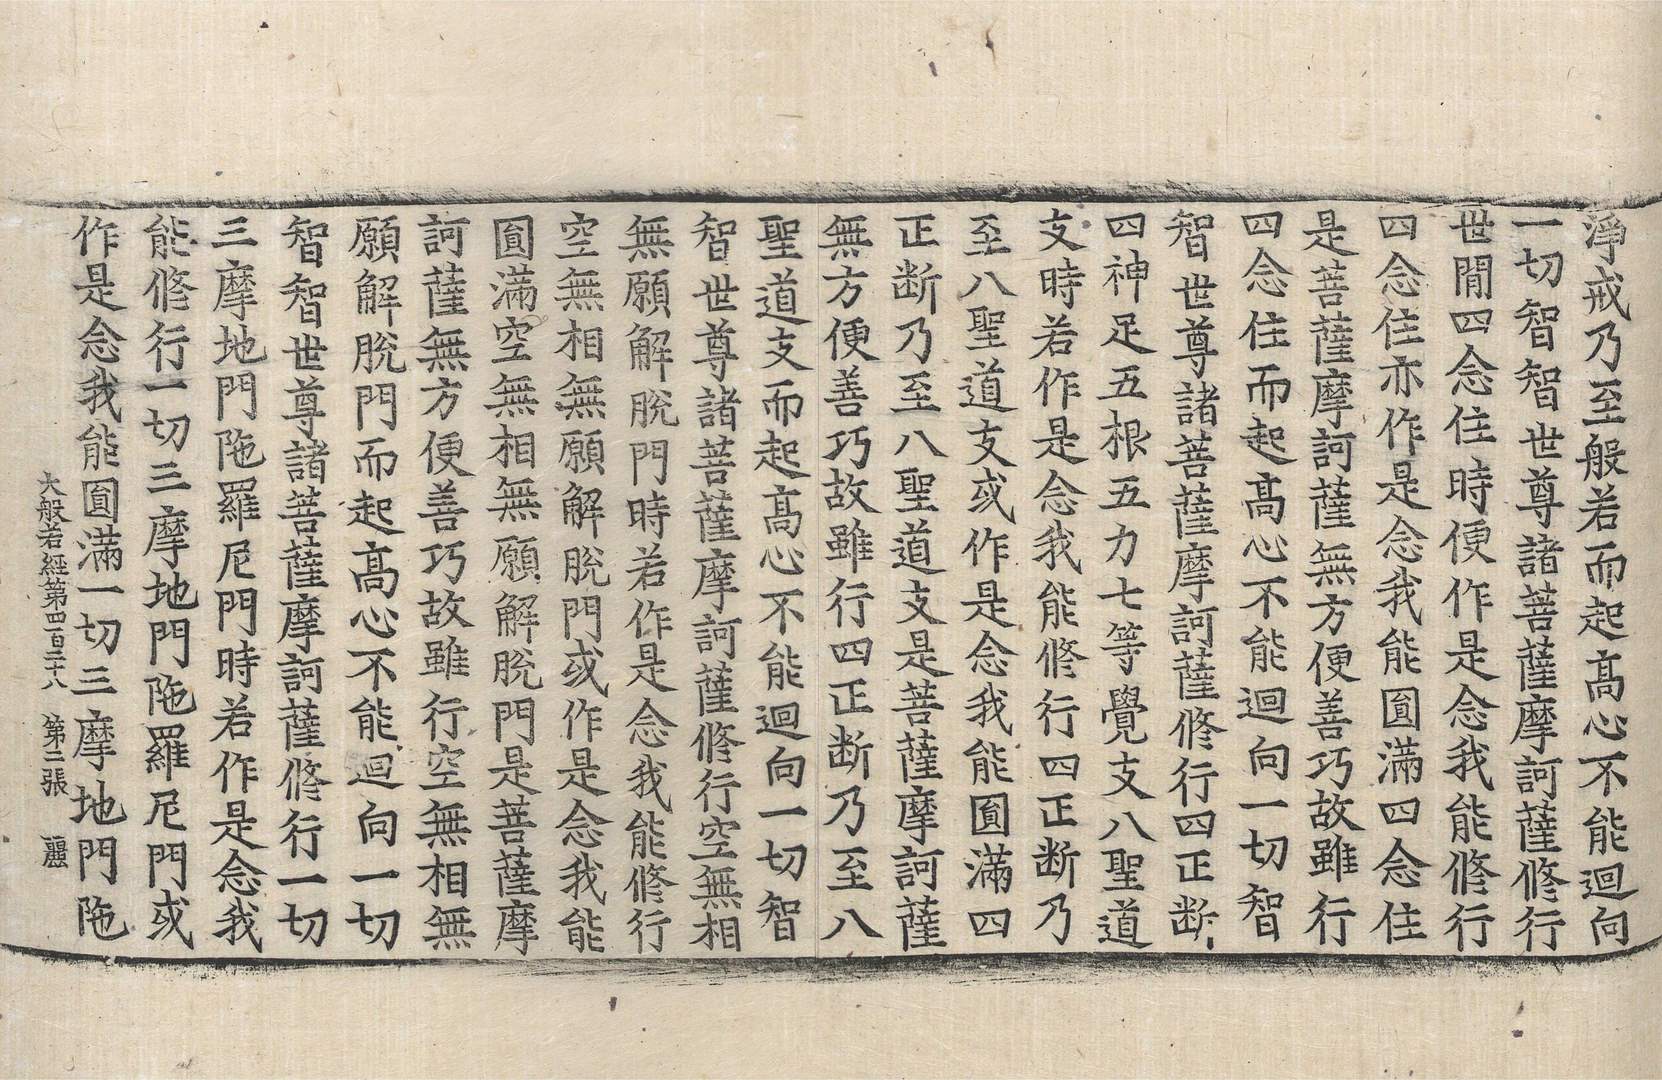 淨戒乃至般若而起高心不能迴向
一切智智世尊諸菩薩摩訶薩修行
世閒四念住時便作是念我能修行
四念住亦作是念我能圓滿四念住
是菩薩摩訶薩無方便善巧故雖行
四念住而起高心不能迴向一切智
智世尊諸菩薩摩訶薩修行四正断
四神足五根五力七等覺支八聖道
支時若作是念我能修行四正断乃
至八聖道支或作是念我能圓滿四
正断乃至八聖道支是菩薩摩訶薩
無方便善巧故雖行四正断乃至八
聖道支而起高心不能迴向一切智
智世尊諸菩薩摩訶薩修行空無相
無願解脫門時若作是念我能修行
空無相無願解脫門或作是念我能
圓滿空無相無願解脫門是菩薩摩
訶薩無方便善巧故雖行空無相無
願解脫門而起高心不能迴向一切
智智世尊諸菩薩摩訶薩修行一切
三摩地門陁羅尼門時若作是念我
能修行一切三摩地門陁羅尼門或
作是念我能圓滿一切三摩地門陁
大般若經第四百二十八 第三張 麗